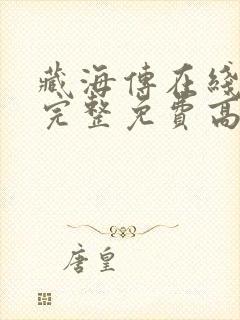 藏海傳在綫
完整免費高
唐皇